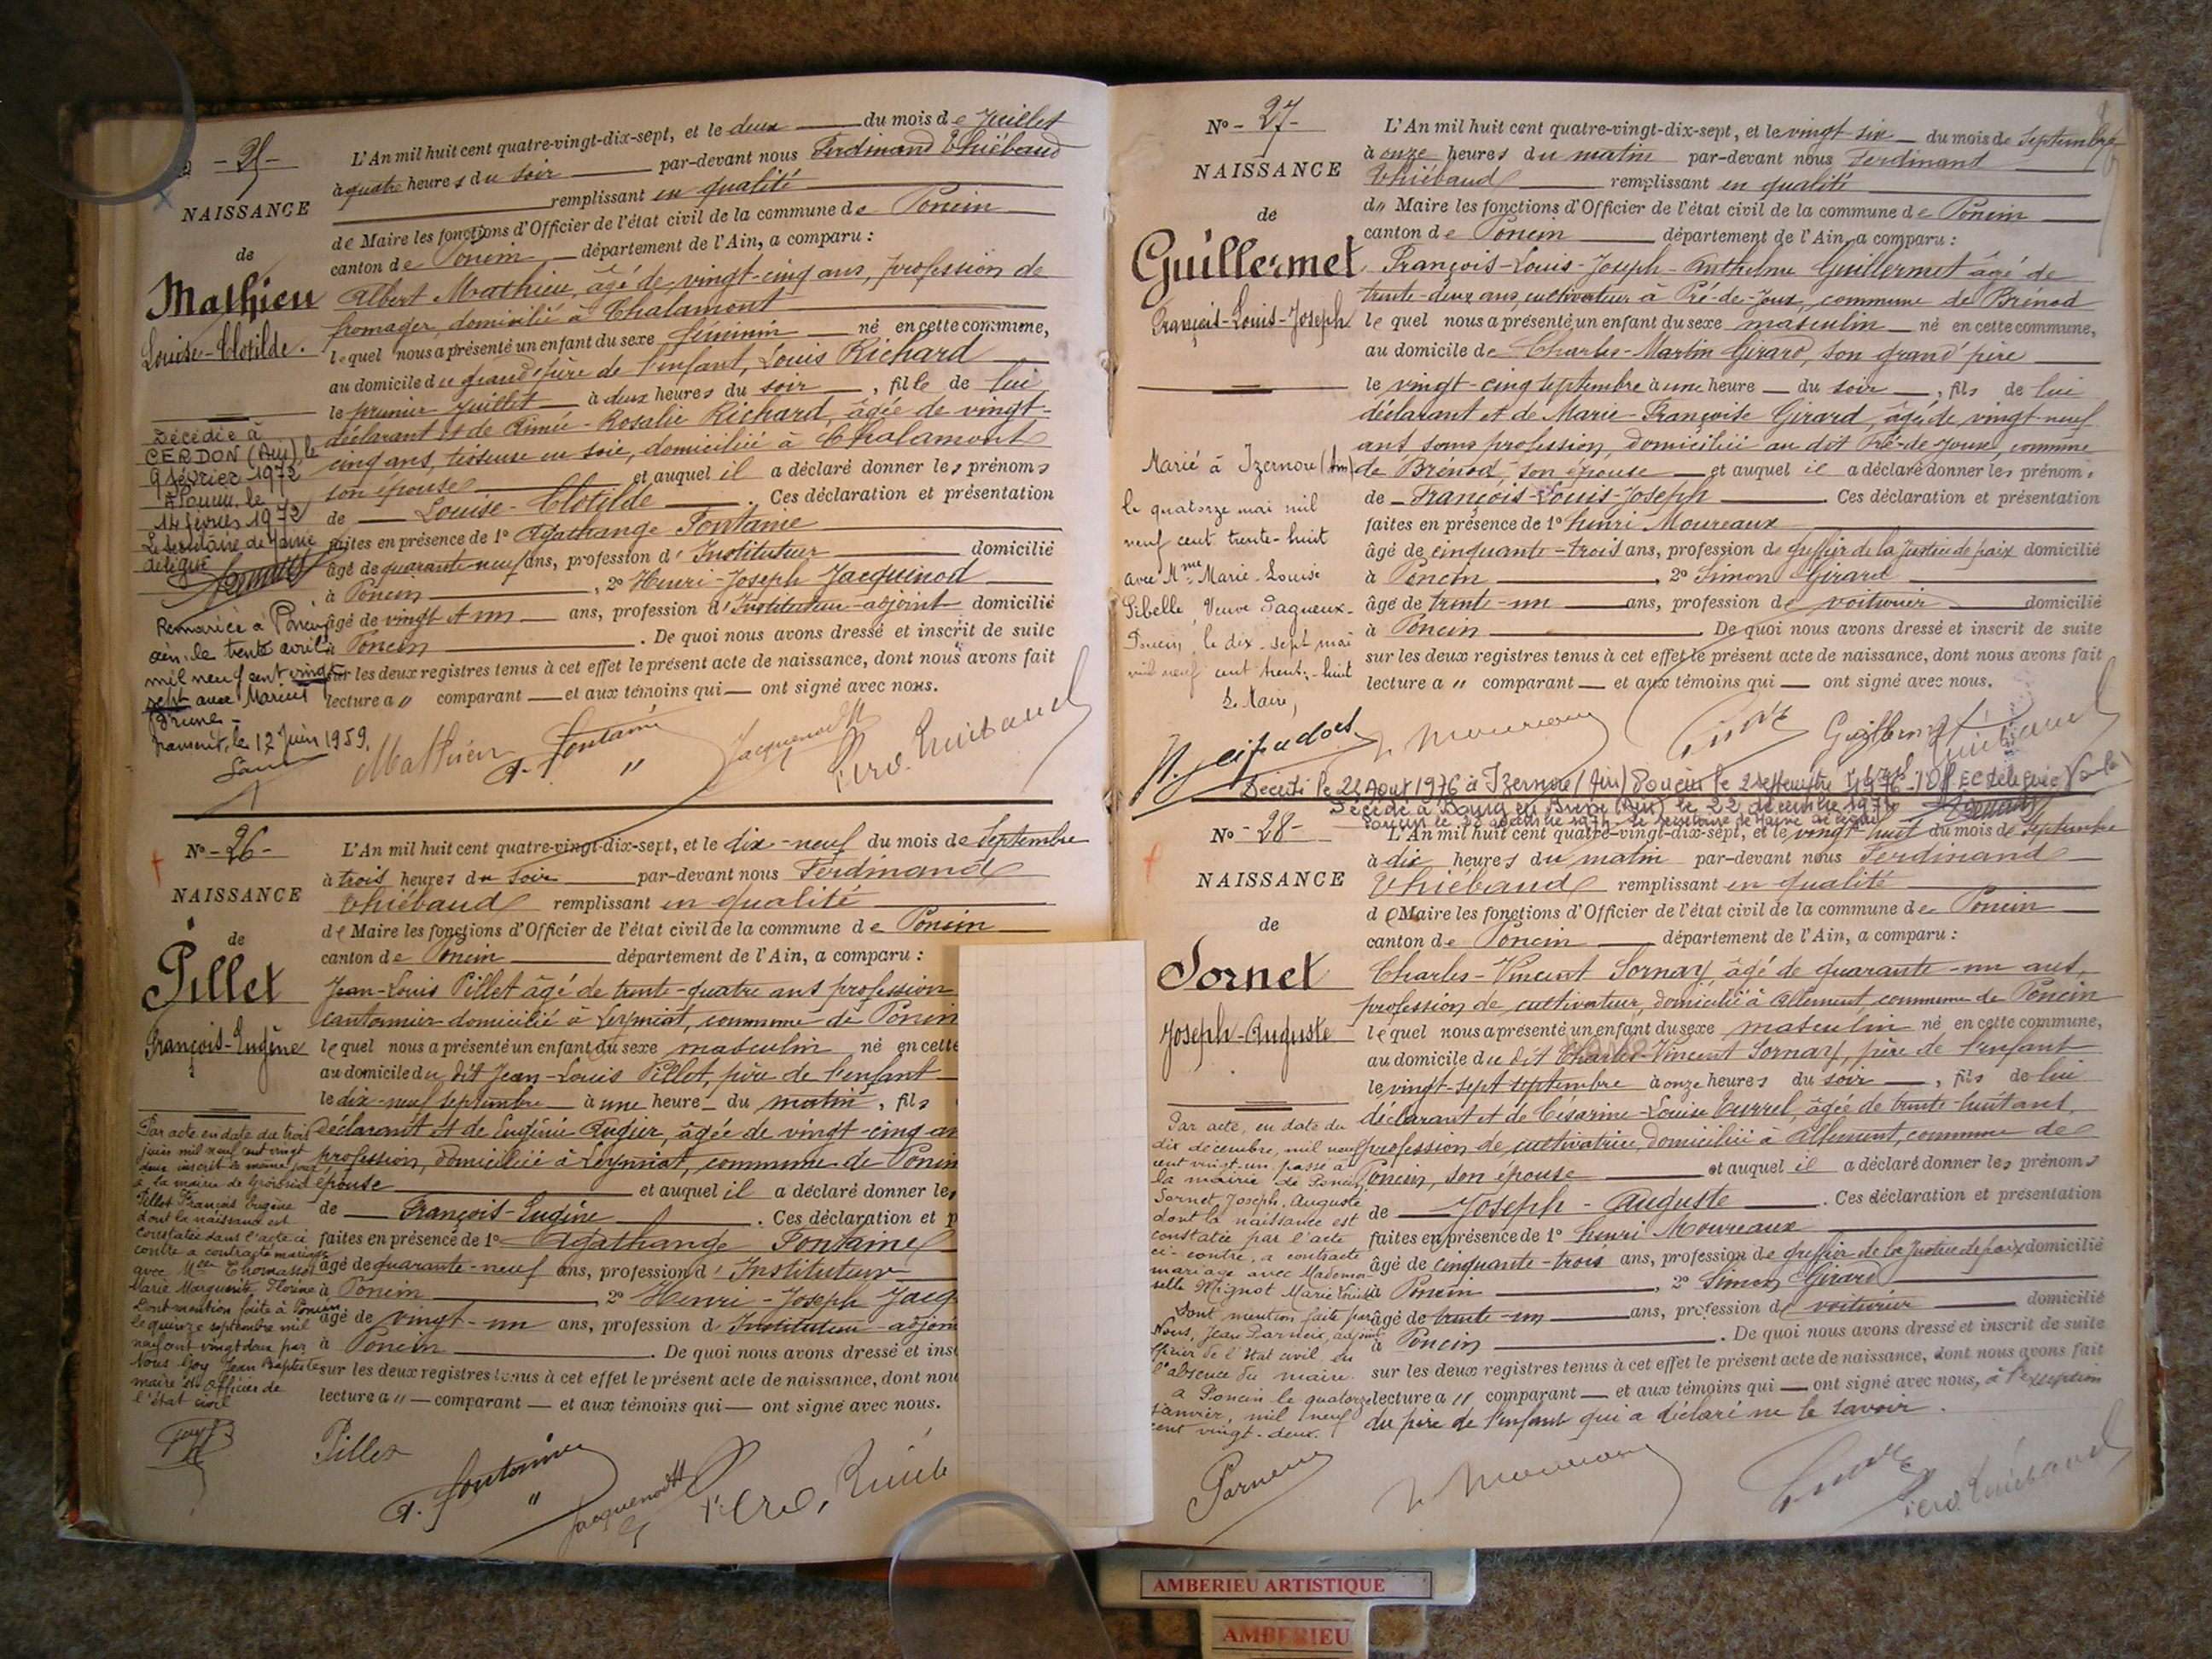 - 25 -
NAISSANCE
de
Mathieu
Louise-Clotilde.
L'An mil huit cent quatre-vingt-dix-sept, et le deux du mois de Juillet
à quatre heures du soir par-devant nous Ferdinand Thiébaud
remplissant en qualité
de Maire les fonctions d'Officier de l'état civil de la commune de Poncin
canton de Poncin département de l'Ain, a comparu :
Albert Mathieu, âgé de vingt-cinq ans, profession de
fromager, domicilié à Chalamont
lequel nous a présenté un enfant du sexe féminin né en cette commune,
au domicile du grand'père de l'enfant, Louis Richard
le premier Juillet à deux heures du soir, fille de lui
déclarant et de Aimée-Rosalie Richard, âgée de vingt-
cinq ans, tisseuse en soie, domiciliée à Chalamont
son épouse et auquel il a déclaré donner les prénoms
de Louise-Clotilde. Ces déclaration et présentation
faites en présence de 1° Agathange Fontaine
âgé de quarante-neuf ans, profession d'Instituteur domicilié
à Poncin, 2° Henri-Joseph Jacquinod
âgé de vingt et un ans, profession d'Instituteur-adjoint domicilié
à Poncin. De quoi nous avons dressé et inscrit de suite
sur les deux registres tenus à cet effet le présent acte de naissance, dont nous avons fait
lecture a " comparant et aux témoins qui ont signé avec nous.
Décédée à
CERDON (Ain) le
9 février 1972
Poncin, le
14 février 1972
Le secrétaire de Mairie
délégué
Remariée à Poncin
Ain, le trente avril
mil neuf cent vingt
sept avec Marius
Brunet
transcrit, le 12 Juin 1959.
Mathieu A. Fontaine Jacquinod H Ferd. Thiébaud
N° - 26 -
NAISSANCE
de
Pillet
François-Eugène
L'An mil huit cent quatre-vingt-dix-sept, et le dix-neuf du mois de Septembre
à trois heures du soir par-devant nous Ferdinand
Thiébaud remplissant en qualité
de Maire les fonctions d'Officier de l'état civil de la commune de Poncin
canton de Poncin département de l'Ain, a comparu :
Jean-Louis Pillet âgé de trente-quatre ans profession
cantonnier domicilié à Leymiat, commune de Poncin
lequel nous a présenté un enfant du sexe masculin né en cette
au domicile du dit Jean-Louis Pillet, père de l'enfant
le dix-neuf septembre à une heure du matin, fils
déclarant et de Eugénie Augier, âgée de vingt-cinq an
profession, domiciliée à Leymiat, commune de Poncin
épouse et auquel il a déclaré donner les
de François-Eugène. Ces déclaration et p
faites en présence de 1° Agathange Fontaine
âgé de quarante-neuf ans, profession d'Instituteur
à Poncin 2° Henri-Joseph Jacq
âgé de vingt-un ans, profession d'Instituteur-adjoin
à Poncin. De quoi nous avons dressé et ins
sur les deux registres tenus à cet effet le présent acte de naissance, dont nou
lecture a " comparant et aux témoins qui ont signé avec nous.
Par acte en date du trois
juin mil neuf cent vingt
deux inscrit le même jour
à la mairie de
Pillet François Eugène
dont la naissance est
constatée dans l'acte ci
contre a contracté mariage
avec Melle Thomasset
Marie Marguerite Florine
Dont mention faite à Poncin
le quinze septembre mil
neuf cent vingt deux par
Nous Goy Jean Baptiste
maire et Officier de
l'état civil
Pillet A. Fontaine Jacquinod H Ferd. Thiéb
N° - 27 -
NAISSANCE
de
Guillermet
François-Louis-Joseph
L'An mil huit cent quatre-vingt-dix-sept, et le vingt-six du mois de Septembre
à onze heures du matin par-devant nous Ferdinand
Thiébaud remplissant en qualité
de Maire les fonctions d'Officier de l'état civil de la commune de Poncin
canton de Poncin département de l'Ain, a comparu :
François-Louis-Joseph-Anthelme Guillermet âgé de
trente-deux ans, cultivateur à Pré-de-Joux, commune de Brénod
lequel nous a présenté un enfant du sexe masculin né en cette commune,
au domicile de Charles-Martin Girard, son grand'père
le vingt-cinq septembre à une heure du soir, fils de lui
déclarant et de Marie-Françoise Girard, âgée de vingt-neuf
ans sans profession, domiciliée au dit Pré-de-Joux, commune
de Brénod, son épouse et auquel il a déclaré donner les prénoms
de François-Louis-Joseph Ces déclaration et présentation
faites en présence de 1° Henri Moureaux
âgé de cinquante-trois ans, profession de greffier de la Justice de paix domicilié
à Poncin, 2° Simon Girard
âgé de trente-un ans, profession de voiturier domicilié
à Poncin. De quoi nous avons dressé et inscrit de suite
sur les deux registres tenus à cet effet le présent acte de naissance, dont nous avons fait
lecture a " comparant et aux témoins qui ont signé avec nous.
Marié à Izernore (Ain)
le quatorze mai mil
neuf cent trente-huit
avec Mme Marie-Louise
Sibelle, Veuve Pagneux.
Poncin, le dix-sept mai
mil neuf cent trente-huit
Le Maire,
Girard Guillermet
Décédé le 22 Août 1976 à Izernore (Ain) Poncin le 2 septembre 1976
Décédé à Bourg en Bresse (Ain) le 22 décembre 1974
N° - 28 -
NAISSANCE
de
Sornet
Joseph-Auguste
L'An mil huit cent quatre-vingt-dix-sept, et le vingt-huit du mois de Septembre
à dix heures du matin par-devant nous Ferdinand
Thiébaud remplissant en qualité
de Maire les fonctions d'Officier de l'état civil de la commune de Poncin
canton de Poncin département de l'Ain, a comparu :
Charles-Vincent Sornay âgé de quarante-un ans,
profession de cultivateur, domicilié à Allement, commune de Poncin
lequel nous a présenté un enfant du sexe masculin né en cette commune,
au domicile du dit Charles-Vincent Sornay, père de l'enfant
le vingt-sept septembre à onze heures du soir, fils de lui
déclarant et de Césarine-Louise Turrel, âgée de trente-huit ans,
profession de cultivatrice, domiciliée à Allement, commune de
Poncin, son épouse et auquel il a déclaré donner les prénoms
de Joseph-Auguste. Ces déclaration et présentation
faites en présence de 1° Henri Moureaux
âgé de cinquante-trois ans, profession de greffier de la Justice de paix domicilié
à Poncin, 2° Simon Girard
âgé de trente-un ans, profession de voiturier domicilié
à Poncin. De quoi nous avons dressé et inscrit de suite
sur les deux registres tenus à cet effet le présent acte de naissance, dont nous avons fait
lecture a " comparant et aux témoins qui ont signé avec nous, à l'exception
du père de l'enfant qui a déclaré ne le savoir.
Par acte, en date du
dix décembre, mil neuf
cent vingt-un, passé à
la mairie de Poncin,
Sornet, Joseph, Auguste
dont la naissance est
constatée par l'acte
ci-contre, a contracté
mariage avec Mademoi-
selle Mignot Marie Louise
Dont mention faite par
Nous, Jean Parneix, adjoint
officier de l'Etat civil, en
l'absence du maire.
A Poncin le quatorze
janvier, mil neuf
cent vingt-deux.
Parneix Girard Ferd. Thiébaud
AMBERIEU ARTISTIQUE
AMBERIEU